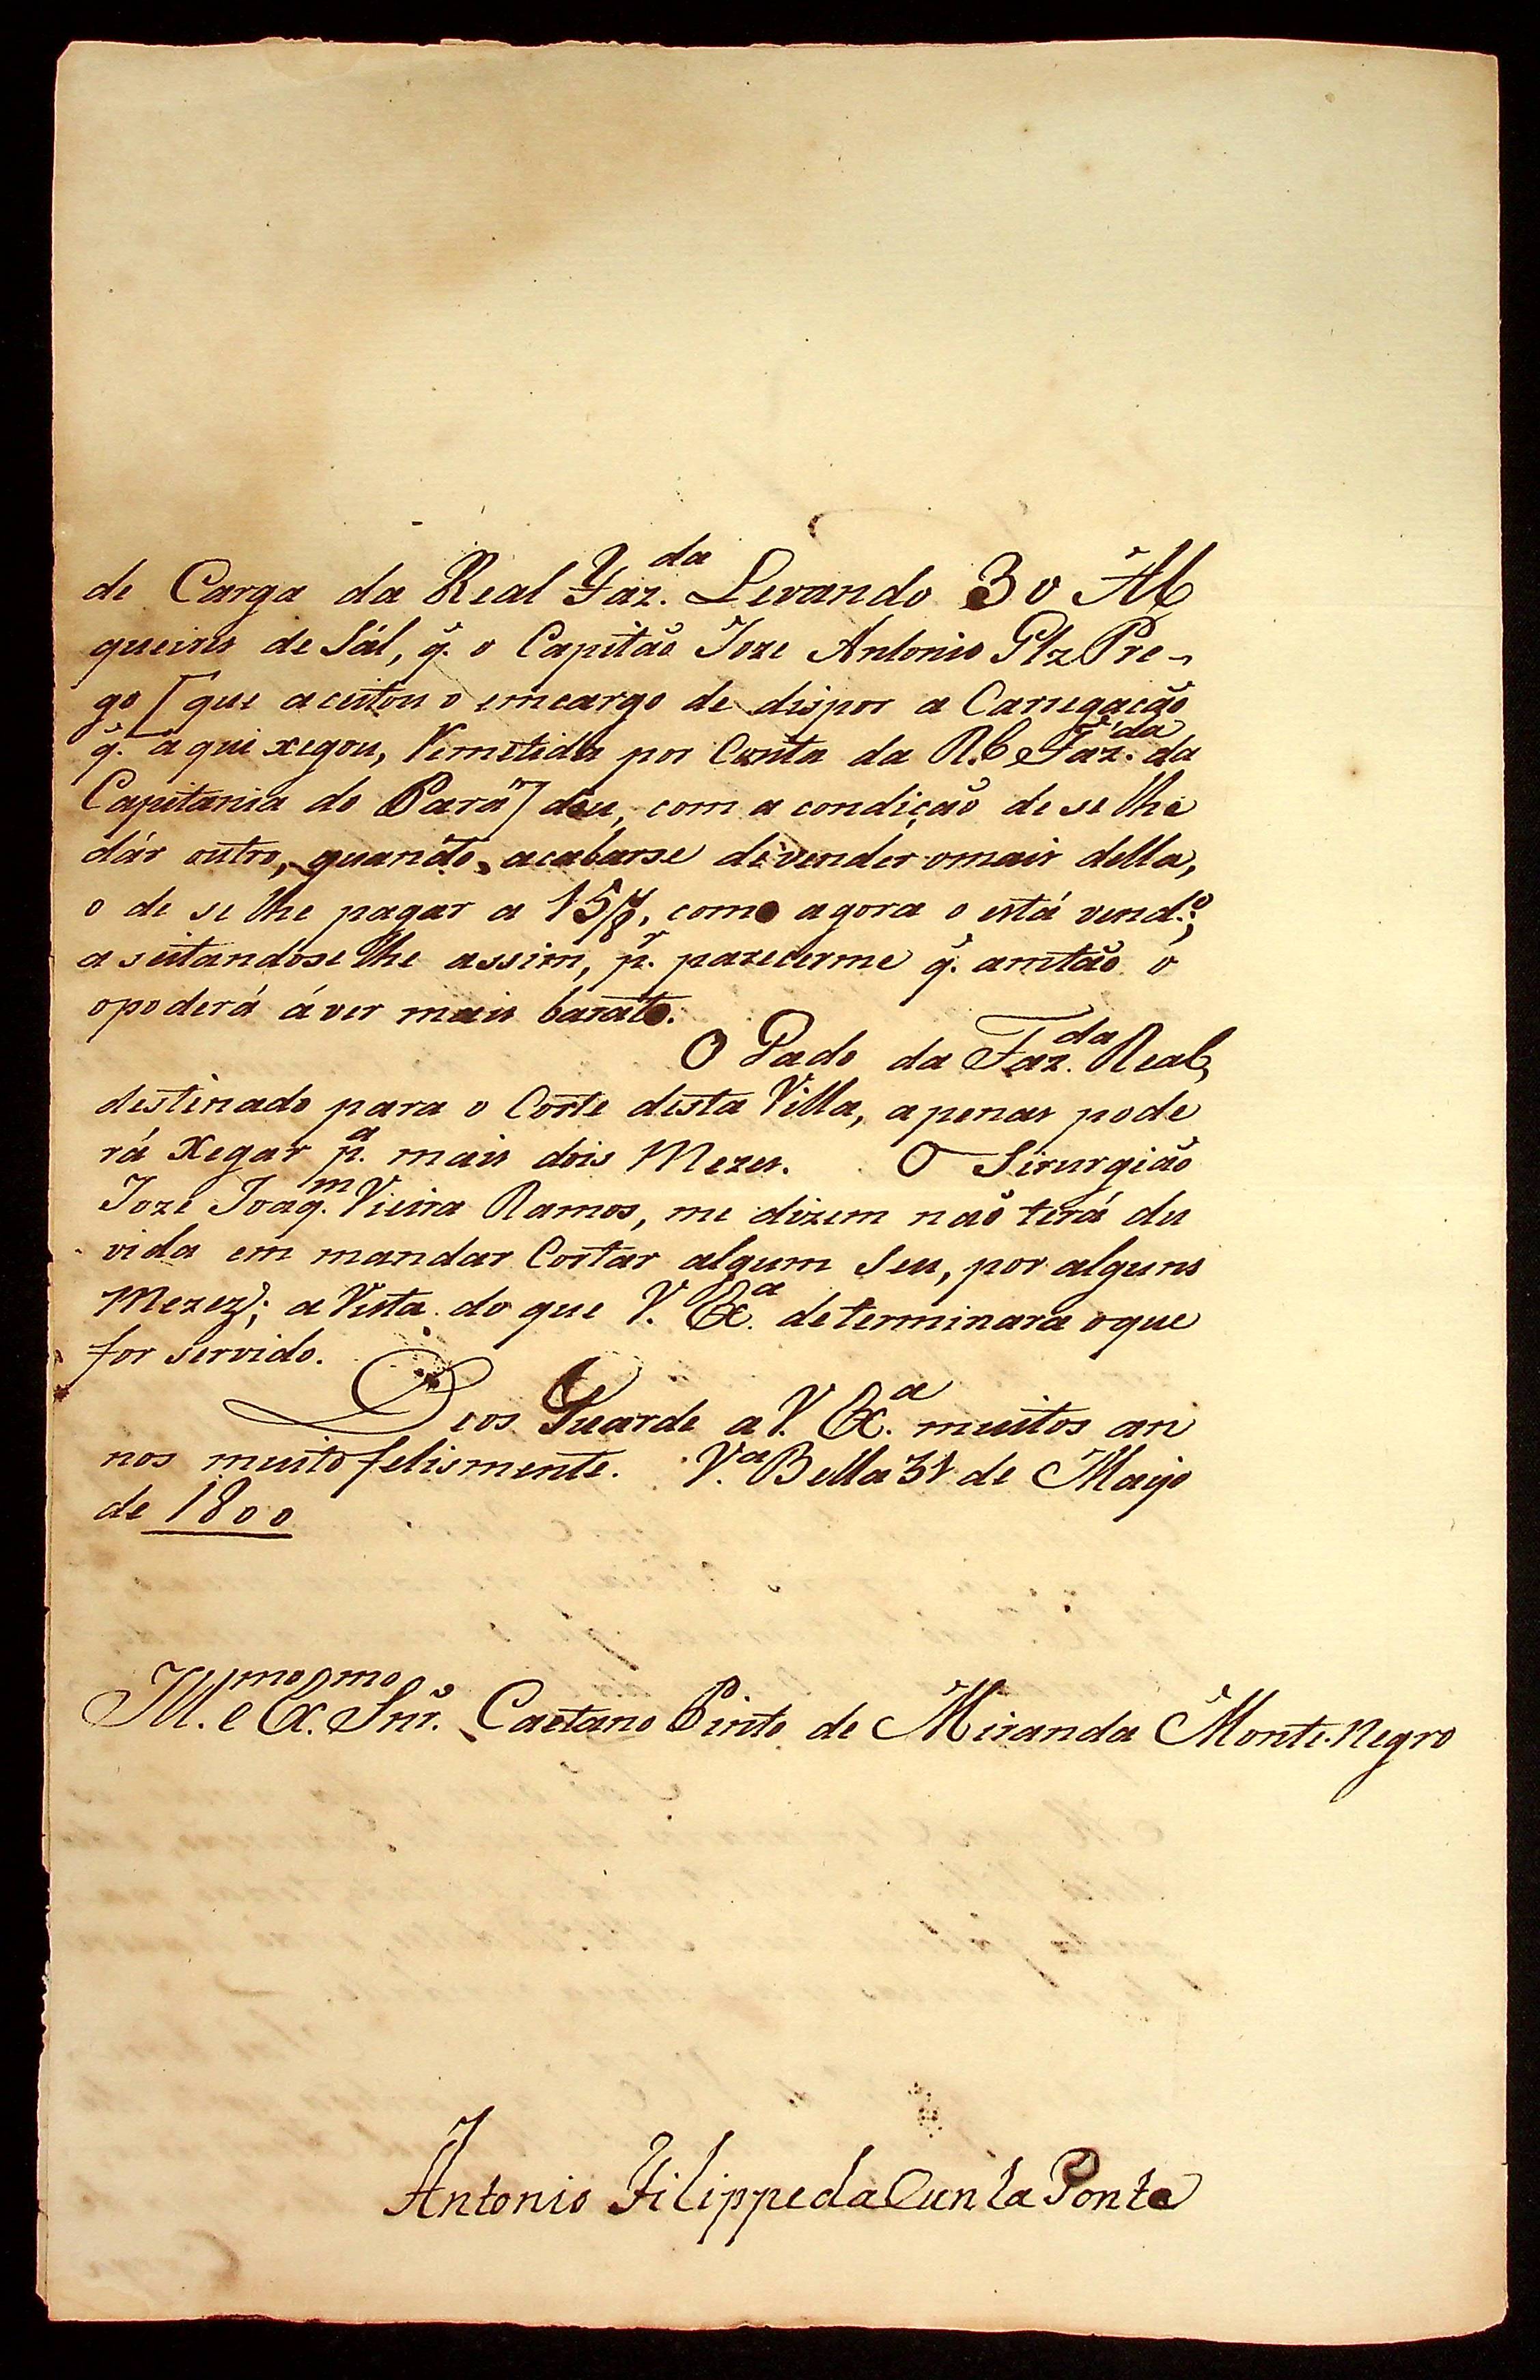 de Carga da Real Faz.da Levando 30 Al
queires de Sál, q̃. o Capitaõ Joze Antonio Glz Pre-
go [que aceitou o emcargo de dispor a Carregacaõ
q̃. aqui xegou, Remetida por Conta da R.l Faz.da da
Capitania do Pará] deu, com a condiçaõ de se lhe
dár outro, quando acabarse de vender omais della,
o de se lhe pagar a 15/8, como agora o está vend.o;
aseitandose lhe assim, p.r parecerme q̃. amtaõ o
opoderá áver mais barato.
O Gado da Faz.da Real,
destinado para o Corte desta Villa, apenas pode
rá Xegar p.a mais dois Mezes. O Sirurgiaõ
Joze Joaq.m Vieira Ramos, me dizem naõ terá du
vida em mandar Cortar algum seu, por alguns
Mezez; a Vista do que V. Ex.a determinara oque
for servido.
Deos Guarde a V. Ex.a muitos an
nos muito felismente. V.a Bella 31 de Mayo
de 1800
Ill.mo e Ex.mo Snr̃. Caetano Pinto de Miranda Monte-Negro
Antonio Filippe da Cunha Ponte
Carga